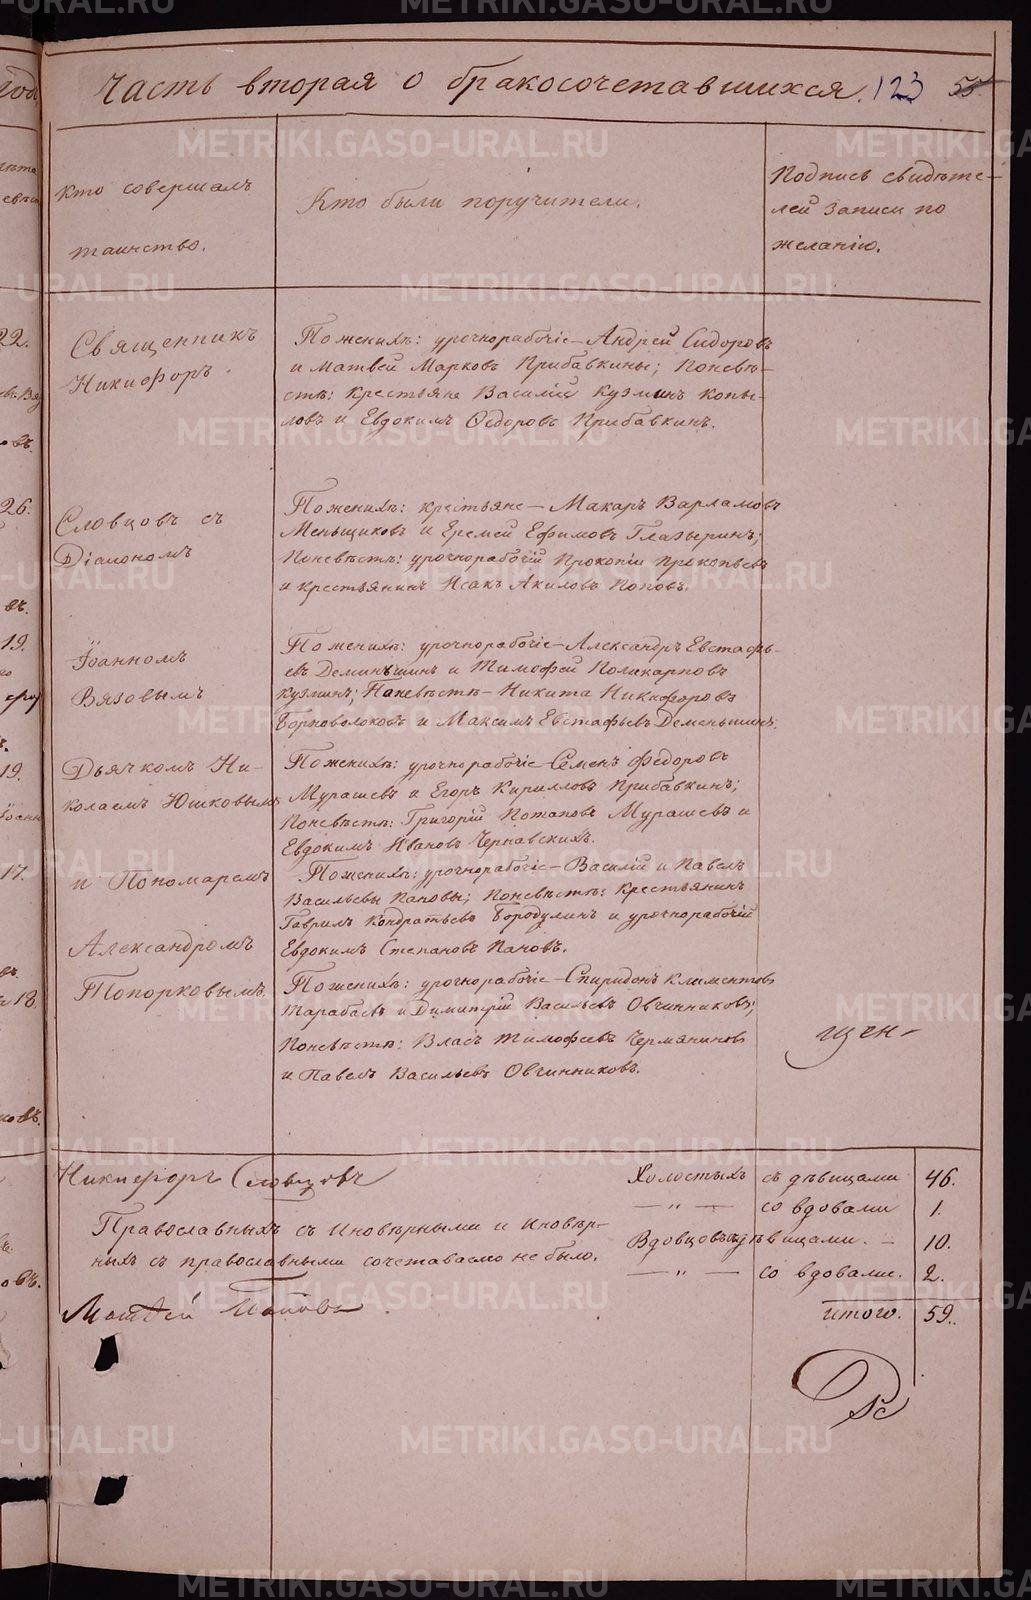 Часть вторая о бракосочетавшихся. 123 55.
Кто совершалъ
таинство.
Кто были поручители.
Подпись свидѣте-
лей записи по
желанію.
Священникъ
Никифоръ
Словцовъ съ
Діакономъ
Іоанномъ
Вязовымъ
Дьячкомъ Ни-
колаемъ Юшковымъ
и Пономаремъ
Александромъ
Топорковымъ.
По женихѣ: урочнорабочіе – Андрей Сидоровъ
и Матвей Марковъ Прибавкины; По невѣ-
стѣ: крестьяне Василій Кузминъ Копы-
ловъ и Евдокимъ Ѳедоровъ Прибавкинъ.
По женихѣ: крестьяне – Макаръ Варламовъ
Меньщиковъ и Еремей Ефимовъ Глазыринъ;
По невѣстѣ: урочнорабочій Прокопій Прокопьевъ
и крестьянинъ Исакъ Акиловъ Поповъ.
По женихѣ: урочнорабочіе – Александръ Евстафь-
евъ Деминьшинъ и Тимофей Поликарповъ
Кузминъ; По невѣстѣ – Никита Никифоровъ
Борноволоковъ и Максимъ Евстафьевъ Деменьшинъ.
По женихѣ: урочнорабочіе – Семенъ Федоровъ
Мурашевъ и Егоръ Кирилловъ Прибавкинъ;
По невѣстѣ: Григорій Потаповъ Мурашевъ и
Евдокимъ Ивановъ Чернавскихъ.
По женихѣ: урочнорабочіе – Василій и Павелъ
Васильевы Пановы; По невѣстѣ: Крестьянинъ
Гаврилъ Кондратьевъ Бородулинъ и урочнорабочій
Евдокимъ Степановъ Пановъ.
По женихѣ: урочнорабочіе – Спиридонъ Климентовъ
Тарабаевъ и Димитрій Васильевъ Овчинниковъ;
По невѣстѣ: Власъ Тимофеевъ Чермяниновъ
и Павелъ Васильевъ Овчинниковъ.
щен-
Никифоръ Словцовъ
Православныхъ съ иновѣрными и иновѣр-
ныхъ съ православными сочетаваемо не было.
Матвей Поповъ
Холостыхъ съ дѣвицами 46.
— " — со вдовами 1.
Вдовцовъ съ дѣвицами. – 10.
— " — со вдовами. 2.
Итого. 59.
METRIKI.GASO-URAL.RU